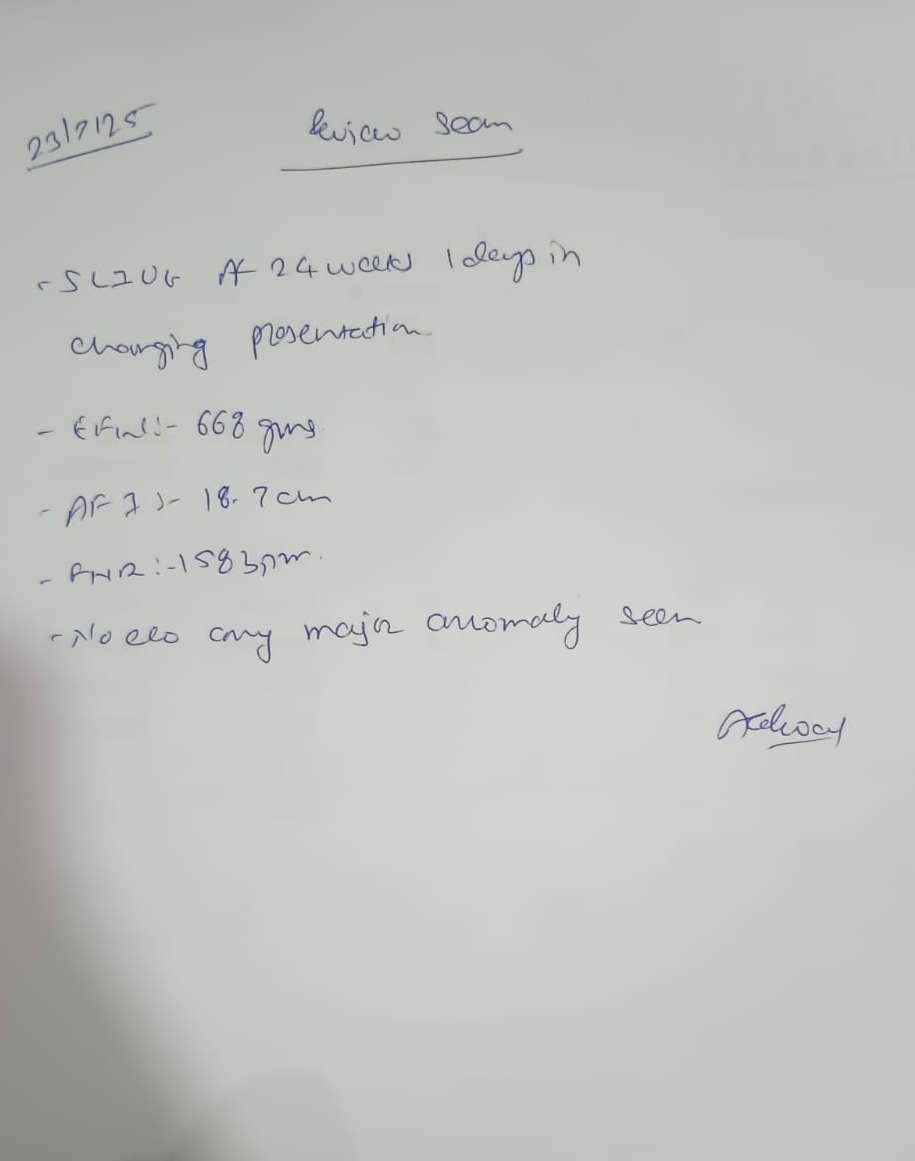 23/7/25
Review Scan
- SLIUG At 24 weeks 1 days in
changing presentation
- EFW :- 668 gms
- AFI :- 18.7 cm
- FHR :- 158 bpm.
- No e/o any major anomaly seen